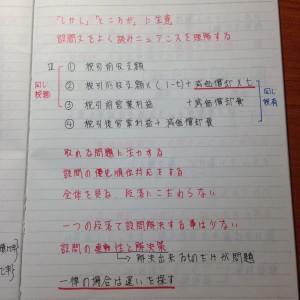 「しかし」「ところが」に注意
設問文をよく読みニュアンスを理解する
① 税引前収支額
② 税引前収支額×(1-t)+減価償却×t
③ 税引前営業利益 +減価償却費
④ 税引後営業利益+減価償却費
同じ
同じ
取れる問題に注力する
設問の優先順位対応をする
全体を見る、段落にこだわらない
一つの段落で設問解決する事は少ない
設問の連動性と解決策
→解決出来るものだけが問題
一律の場合は違いを探す